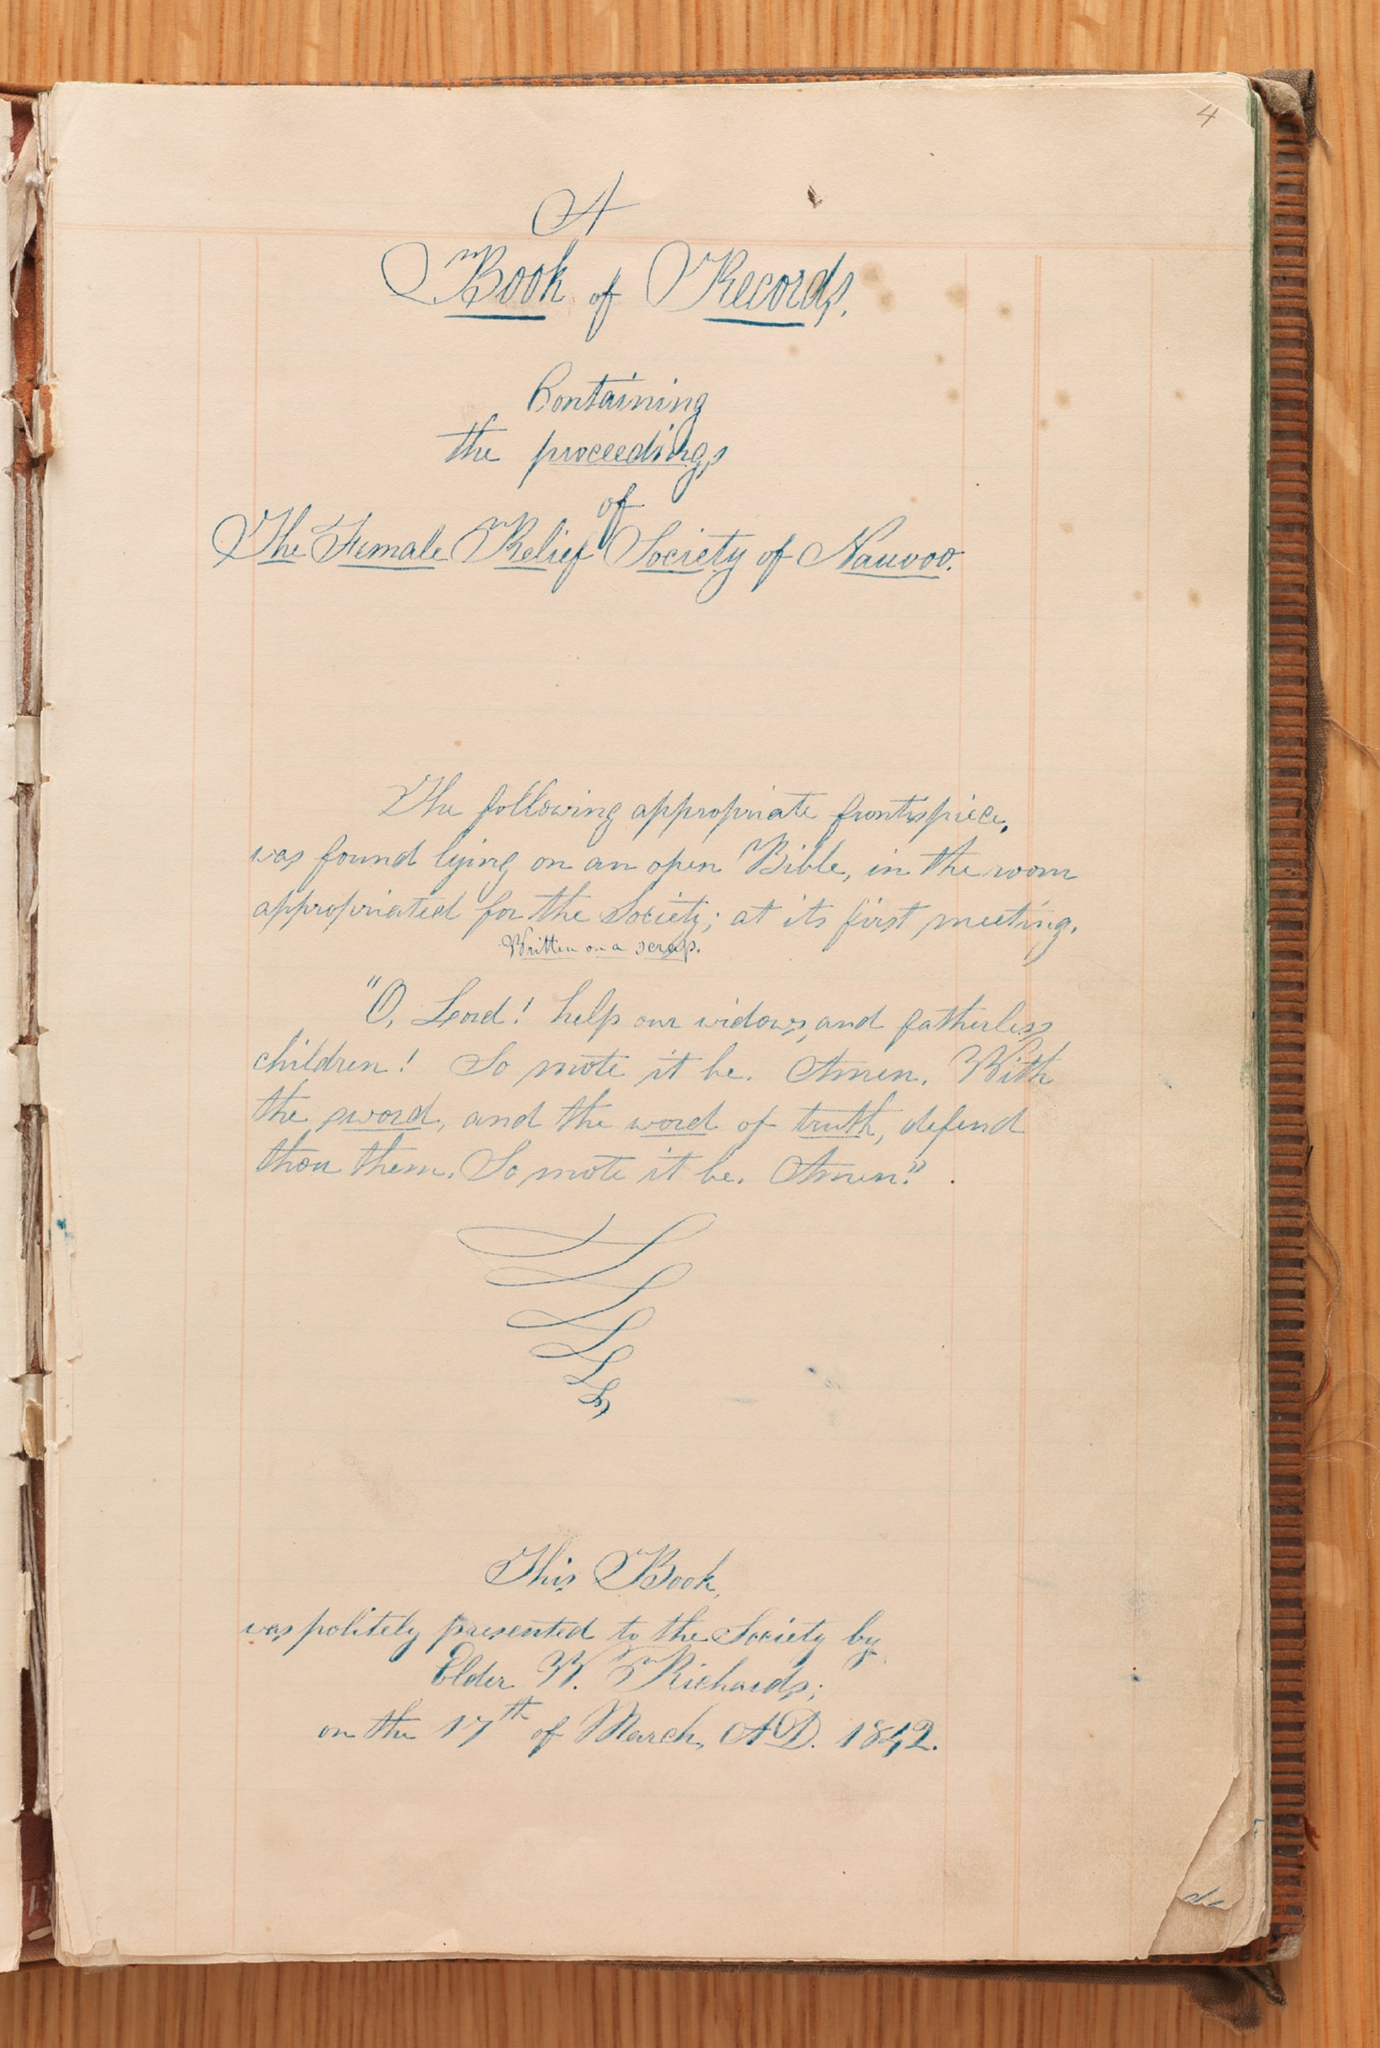 4
A
Book of Records.
Containing
the proceedings
of
The Female Relief Society of Nauvoo.
The following appropriate frontispiece,
was found lying on an open Bible, in the room
appropriated for the Society; at its first meeting.
Written on a scrap.
"O, Lord! help our widows, and fatherless
children! So mote it be. Amen. With
the sword, and the word of truth, defend
thou them. So mote it be. Amen."
This Book,
was politely presented to the Society by
Elder W. Richards;
on the 17th of March, AD. 1842.